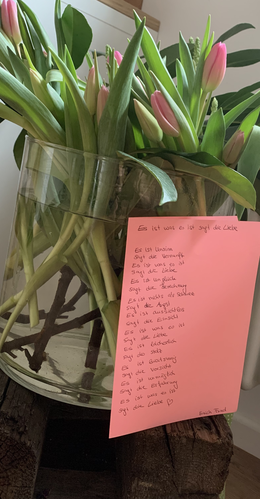 Es ist was es ist sagt die Liebe
Es ist Unsinn
sagt die Vernunft
Es ist was es ist
sagt die Liebe
Es ist Unglück
sagt die Berechnung
Es ist nichts als Schmerz
sagt die Angst
Es ist aussichtslos
sagt die Einsicht
Es ist was es ist
sagt die Liebe
Es ist lächerlich
sagt der Stolz
Es ist leichtsinnig
sagt die Vorsicht
Es ist unmöglich
sagt die Erfahrung
Es ist was es ist
sagt die Liebe ♡
Erich Fried